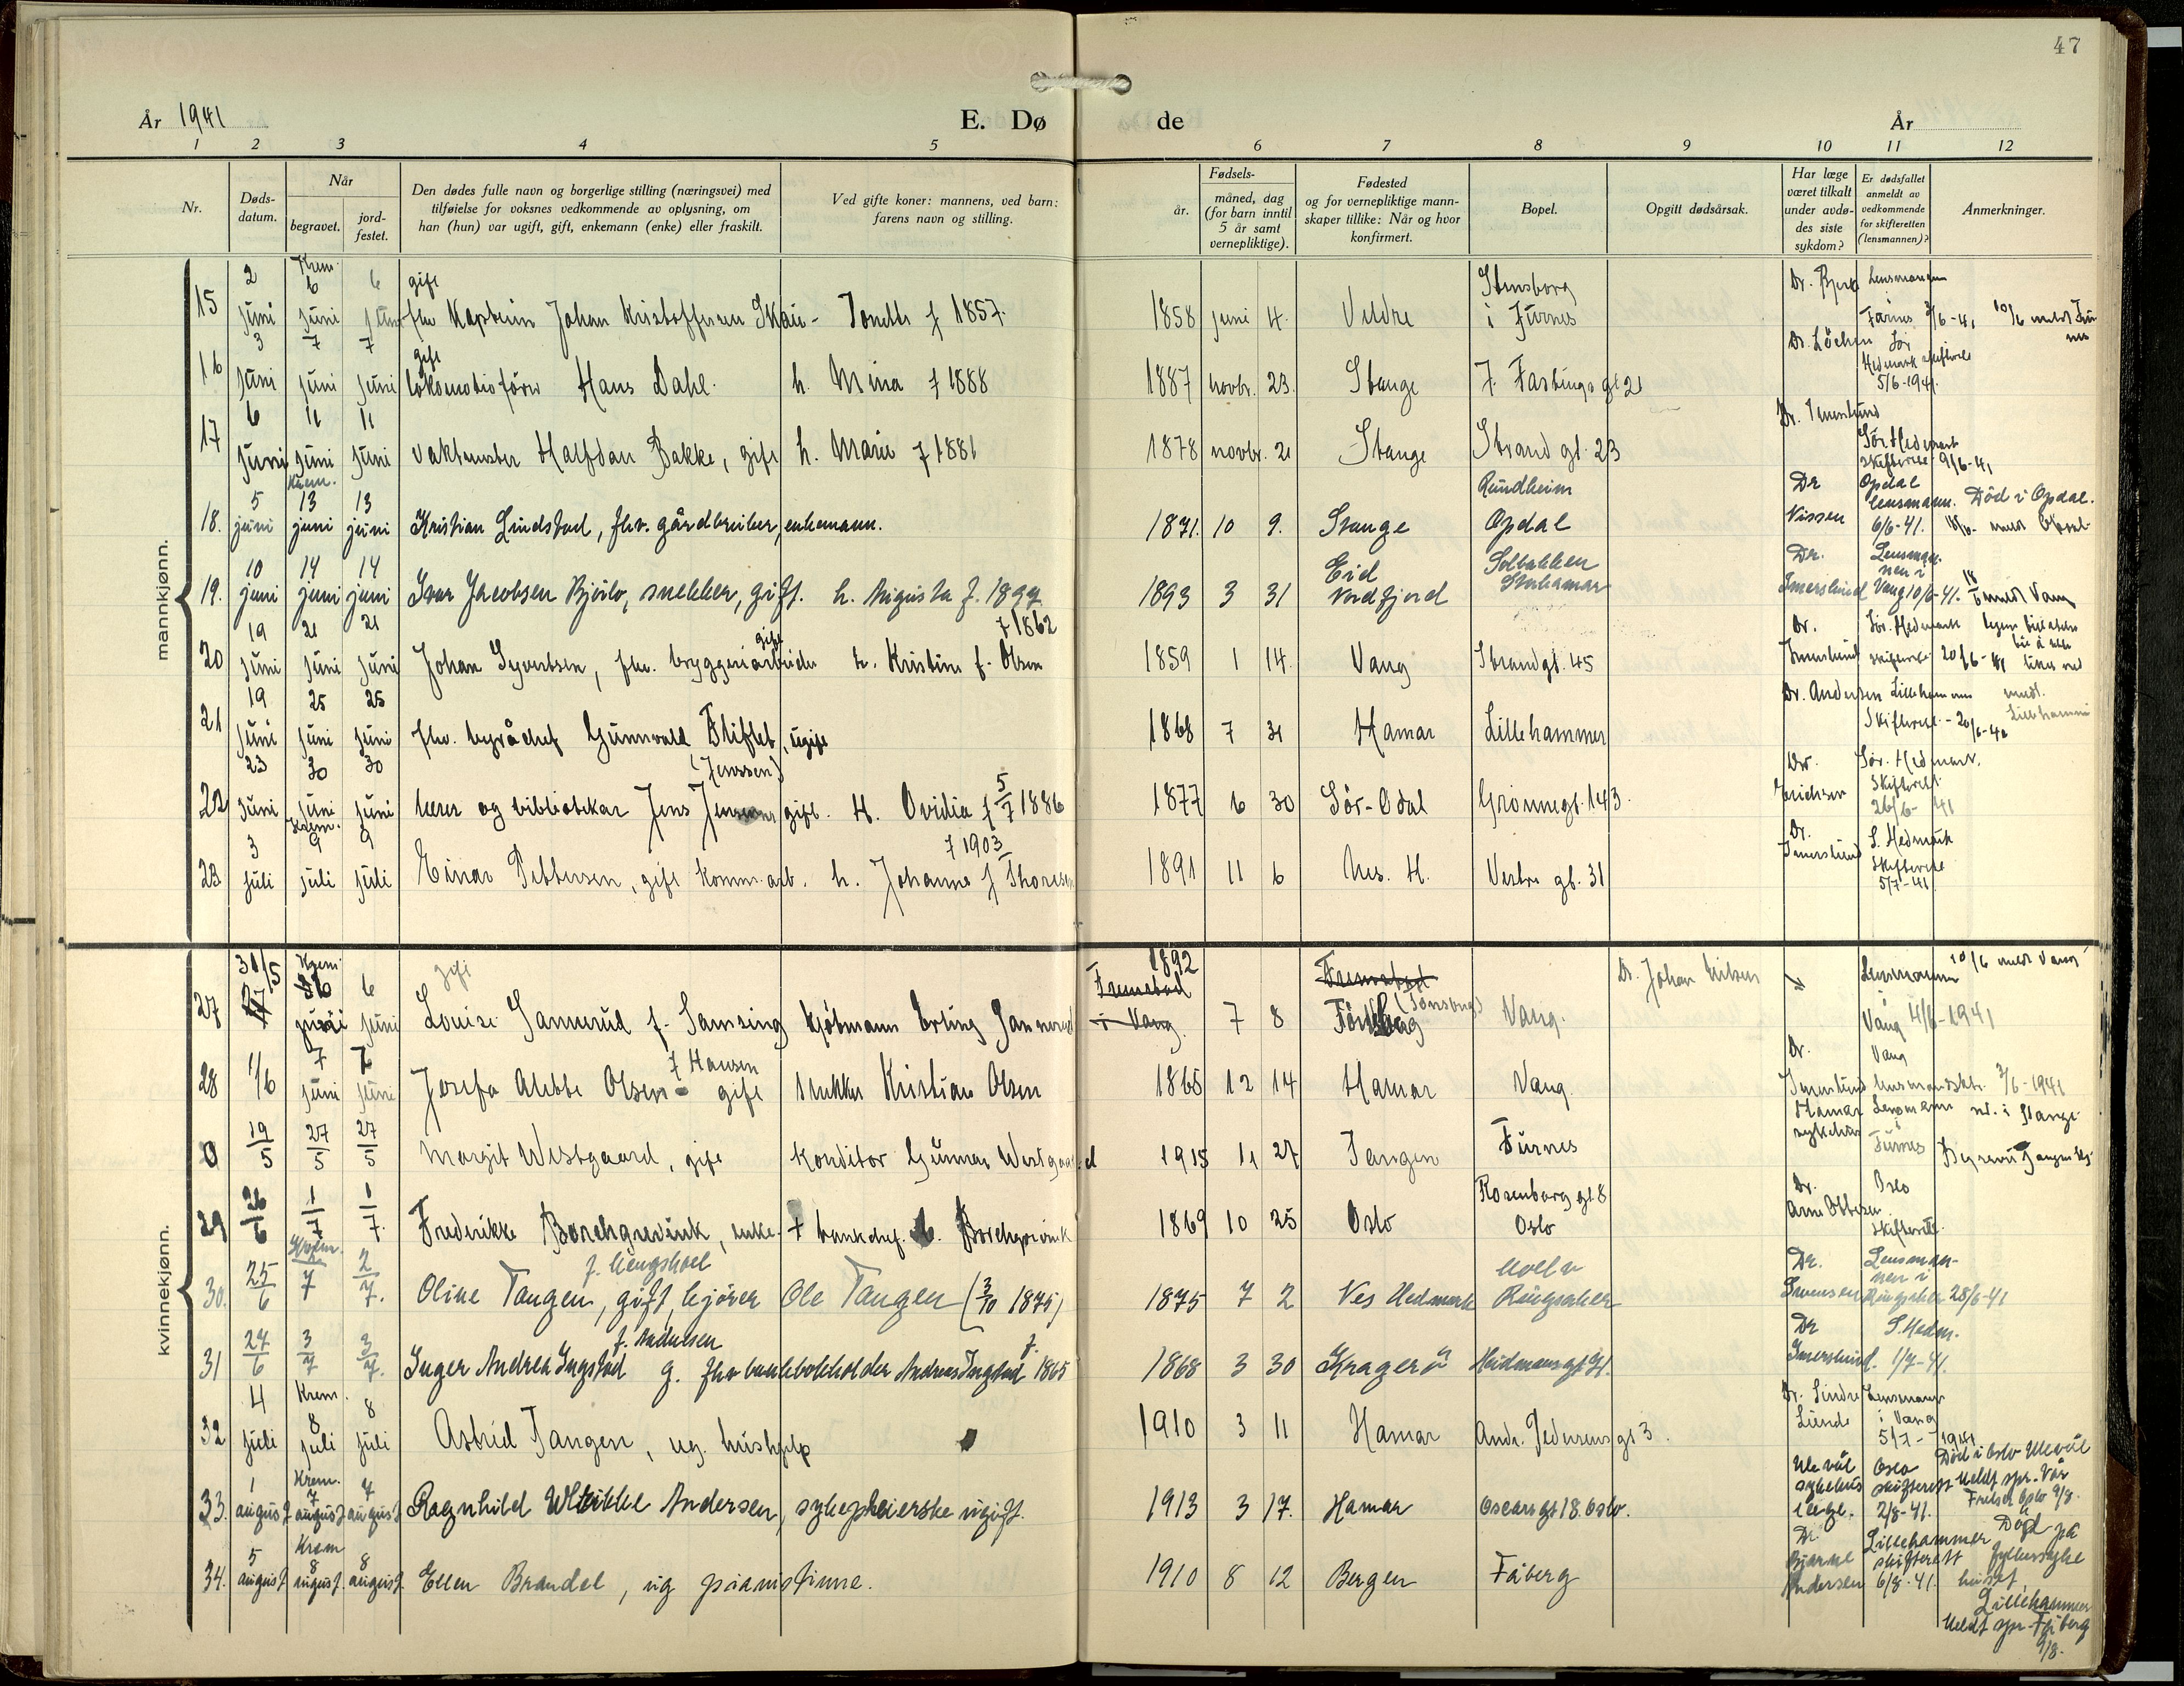 47
År 1941
E. Dø de
År
1 2 3 4 5 6 7 8 9 10 11 12
Nr.
Døds-
datum.
Når
begravet.
jord-
festet.
Den dødes fulle navn og borgerlige stilling (næringsvei) med
tilføielse for voksnes vedkommende av oplysning, om
han (hun) var ugift, gift, enkemann (enke) eller fraskilt.
Ved gifte koner: mannens, ved barn:
farens navn og stilling.
Fødsels-
år.
måned, dag
(for barn inntil
5 år samt
vernepliktige).
Fødested
og for vernepliktige mann-
skaper tillike: Når og hvor
konfirmert.
Bopel.
Opgitt dødsårsak.
Har læge
været tilkalt
under avdø-
des siste
sykdom?
Er dødsfallet
anmeldt av
vedkommende
for skifteretten
(lensmannen)?
Anmerkninger.
mannkjønn.
15 2 juni Krem. 6 juni 6 juni gift fhv Kaptein Johan Kristoffersen Skau - f 1857. 1858 juni 4. Veldre Stensborg i Furnes Lensmannen i Furnes 3/6-41 10/6 meldt Furnes
16 3 juni 7 juni 7 juni gift lokomotivfører Hans Dahl. h. Mina f 1888 1887 novbr. 23. Stange J. Fastings gt 21 Dr. Löchen Sør Hedmark skifterett 5/6-1941.
17 6 juni 11 juni 11 juni vaktmester Halfdan Bakke, gift h. Marie f 1881 1878 novbr. 21 Stange Strand gt. 23 Dr. Imerslund Sør Hedmark skifterett 9/6-41
18. 5 juni Krem. 13 juni 13 juni Kristian Lindstad, fhv. gårdbruker, enkemann. 1871. 10 9. Stange Rundheim Opdal Dr Nissen Opdal lensmann. 6/6-41. Død i Opdal. meldt Opdal
19. 10 juni 14 juni 14 juni Ivar Jacobsen Bjørlo, snekker, gift. h. Augusta f. 1897 1893 3 31 Eid Nordfjord Solbakken Storhamar Dr. Imerslund Lensmannen i Vang 10/6-41. meldt Vang
20 19 juni 21 juni 21 juni Johan Syvertsen, fhv. bryggeriarbeider gift h. Kristine f. Olsen f 1862 1859 1 14. Vang Strandgt. 45 Dr. Imerslund Sør. Hedmark skifterett 20/6-41
21 19 juni 25 juni 25 juni fhv. byråchef Gunnvald Fliflet, ugift 1868 7 31 Hamar Lillehammer Dr. Andersen Lillehammer Skifterett - 20/6-41 meldt. Lillehammer
22 23 juni 30 juni 30 juni lærer og bibliotekar Jens (Jenssen) gift. H. Ovidia f 5/7 1886 1877 6 30 Sør-Odal Grønnegt. 143. Dr. Erichsen Sør. Hedmark. Skifterett 26/6-41
23. 3 juli Krem. 9 juli 9 juli Einar Pettersen, gift komm.arb. h. Johanne f Thoresen f 1903 1891 11 6 Nes. H. Vestre gt. 31 Dr. Imerslund S. Hedmark Skifterett 5/7-41
kvinnekjønn.
27 31/5 Krem. 6 juni 6 juni gift Louise Sannerud f. Samsing kjøbmann Erling Sannerud 1892 Frenstad i Vang. 7 8 (Tønsberg) Vang. Dr. Johan Lensmannen Vang 4/6-1941 10/6 meldt Vang
28 1/6 7 juni 7 juni Josefa Alette Olsen f Hansen gift snekker Kristian Olsen 1865 12 14 Hamar Vang. Dr. Imerslund Vang lensmannsktr. 3/6-1941
0 19/5 27/5 27/5 Margit Westgaard, gift Konditor Gunnar Westgaard 1915 11 27 Tangen Furnes Hamar sykehus Lensmann i Furnes
29 26/6 1/7 1/7. Frederikke Borchgrevink, enke. + bankchef. Borchgrevink 1869 10 25 Oslo Rosenborg gt. 8 Oslo Dr. Arne Ottesen Oslo Skifterett.
30. 25/6 Krem. 7 2/7. Oline Tangen, gift kjører f. Lengshoel Ole Tangen (3/10 1875) 1875 7 2 Nes Hedmark Moelv Ringsaker Dr. Svensen Lensmannen i Ringsaker 28/6-41
31 27/6 3/7 3/7. Inger Andrea Ingstad f. Andersen g. fhv bankbokholder Andreas Ingstad f. 1865 1868 3 30 Kragerö Heidmannsgt 71. Dr Imerslund. S. Hedm. 1/7-41.
32 4 juli Krem. 8 juli 8 juli Astrid Tangen, ug. hushjelp 1910 3 11 Hamar Andr. Pedersens gt 3. Dr. Sindre Lunde Lensmannen i Vang 5/7-1941
33. 1 august Krem. 7 august 7 august Ragnhild Wibikke Andersen, sykepleierske ugift. 1913 3 17. Hamar Oscars gt 18. Oslo. Ulevål sykehus lege. Oslo skifterett 2/8-41. Død i Oslo Ulevål Meldt spr. Vår Frelser Oslo 9/8.
34. 5 august Krem 8 august. 8 august. Ellen Brandel, ug pianistinne. 1910 8 12 Bergen Fåberg Dr. Bjarne Andersen Lillehammer skifterett 6/8-41. Død på fylkessykehuset, Lillehammer Meldt spr. Fåberg 9/8.